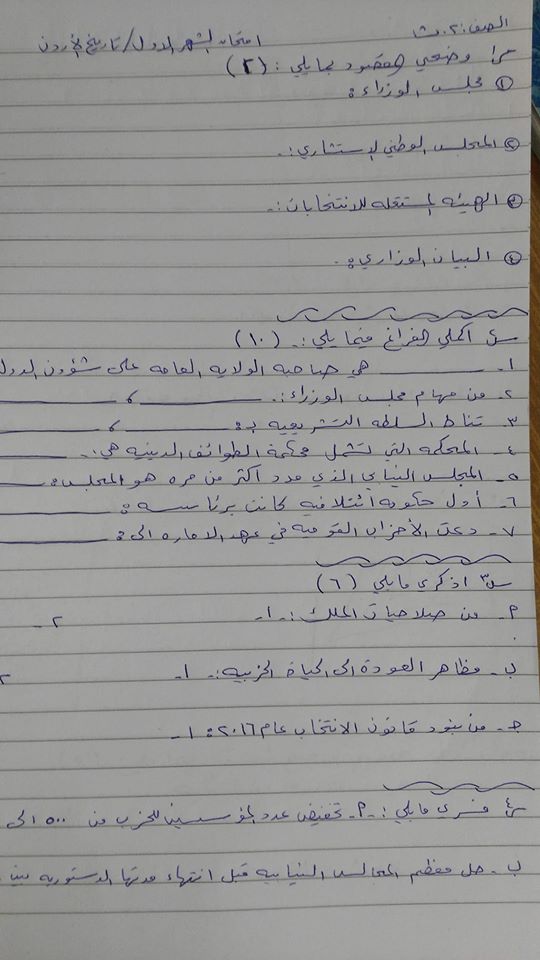 الصف: ٢.ث امتحان الشهر الاول/ تاريخ الأردن
س١ وضحي المقصود بمايلي: (٢)
① مجلس الوزراء:
② المجلس الوطني الاستشاري:-
③ الهيئه المستقله للانتخابات:-
④ البيان الوزاري:-
س٢ أكملي الفراغ فيما يلي:- (١٠)
١- ________ هي صاحبه الولايه العامه على شؤون الدول
٢- من مهام مجلس الوزراء:- ________ و ________
٣- تناط السلطه التشريعيه بـ: ________ و ________
٤- المحكمه التي تشمل محكمة الطوائف الدينيه هي:-
٥- المجلس النيابي الذي مدد أكثر من مره هو المجلس:
٦- أول حكومه أئتلافيه كانت برئاسه:
٧- دعت الأحزاب القوميه في عهد الاماره الى: ________
س٣ اذكري مايلي (٦)
أ- من صلاحيات الملك:- ١- ٢-
ب- مظاهر العودة الى الحياة الحزبيه:- ١- ٢
جـ- من بنود قانون الانتخاب عام ٢٠١٦: ١-
س٤ فسري مايلي:- أ- تخفيض عدد المؤسسين للحزب من ٥٠٠ الى
ب- حل معظم المجالس النيابيه قبل انتهاء مدتها الدستوريه